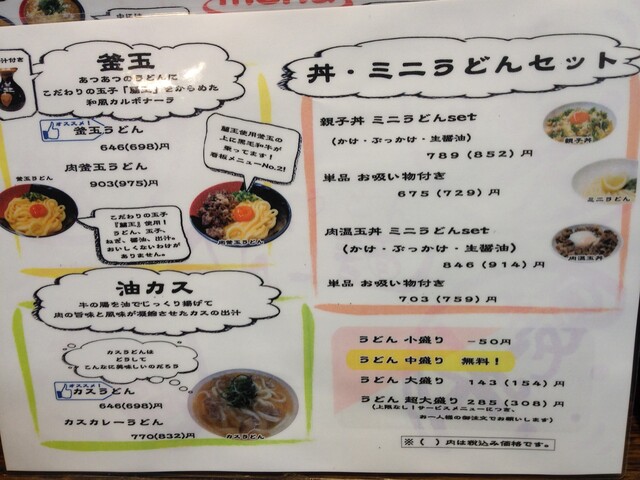 menu
汁付き
釜玉
あつあつのうどんに
こだわりの玉子『蘭王』をからめた
和風カルボナーラ
オススメ!
釜玉うどん
646(698)円
肉釜玉うどん
903(975)円
蘭王使用釜玉の
上に黒毛和牛が
乗ってます!
看板メニューNo.2!
釜玉うどん
こだわりの玉子
『蘭王』使用!
うどん、玉子、
ねぎ、醤油、出汁。
おいしくないわけが
ありません。
肉釜玉うどん
油カス
牛の腸を油でじっくり揚げて
肉の旨味と風味が凝縮させたカスの出汁
カスうどんは
どうして
こんなに美味しいのだろう
オススメ!
カスうどん
646(698)円
カスカレーうどん
770(832)円
カスうどん
丼・ミニうどんセット
親子丼 ミニうどんset
(かけ・ぶっかけ・生醤油)
789(852)円
単品 お吸い物付き
675(729)円
親子丼
ミニうどん
肉温玉丼 ミニうどんset
(かけ・ぶっかけ・生醤油)
846(914)円
単品 お吸い物付き
703(759)円
肉温玉丼
うどん 小盛り -50円
うどん 中盛り 無料!
うどん 大盛り 143(154)円
うどん 超大盛り 285(308)円
(上限なし!サービスメニューにつき、
お一人様の御注文でお願いします)
※( )内は税込み価格です。